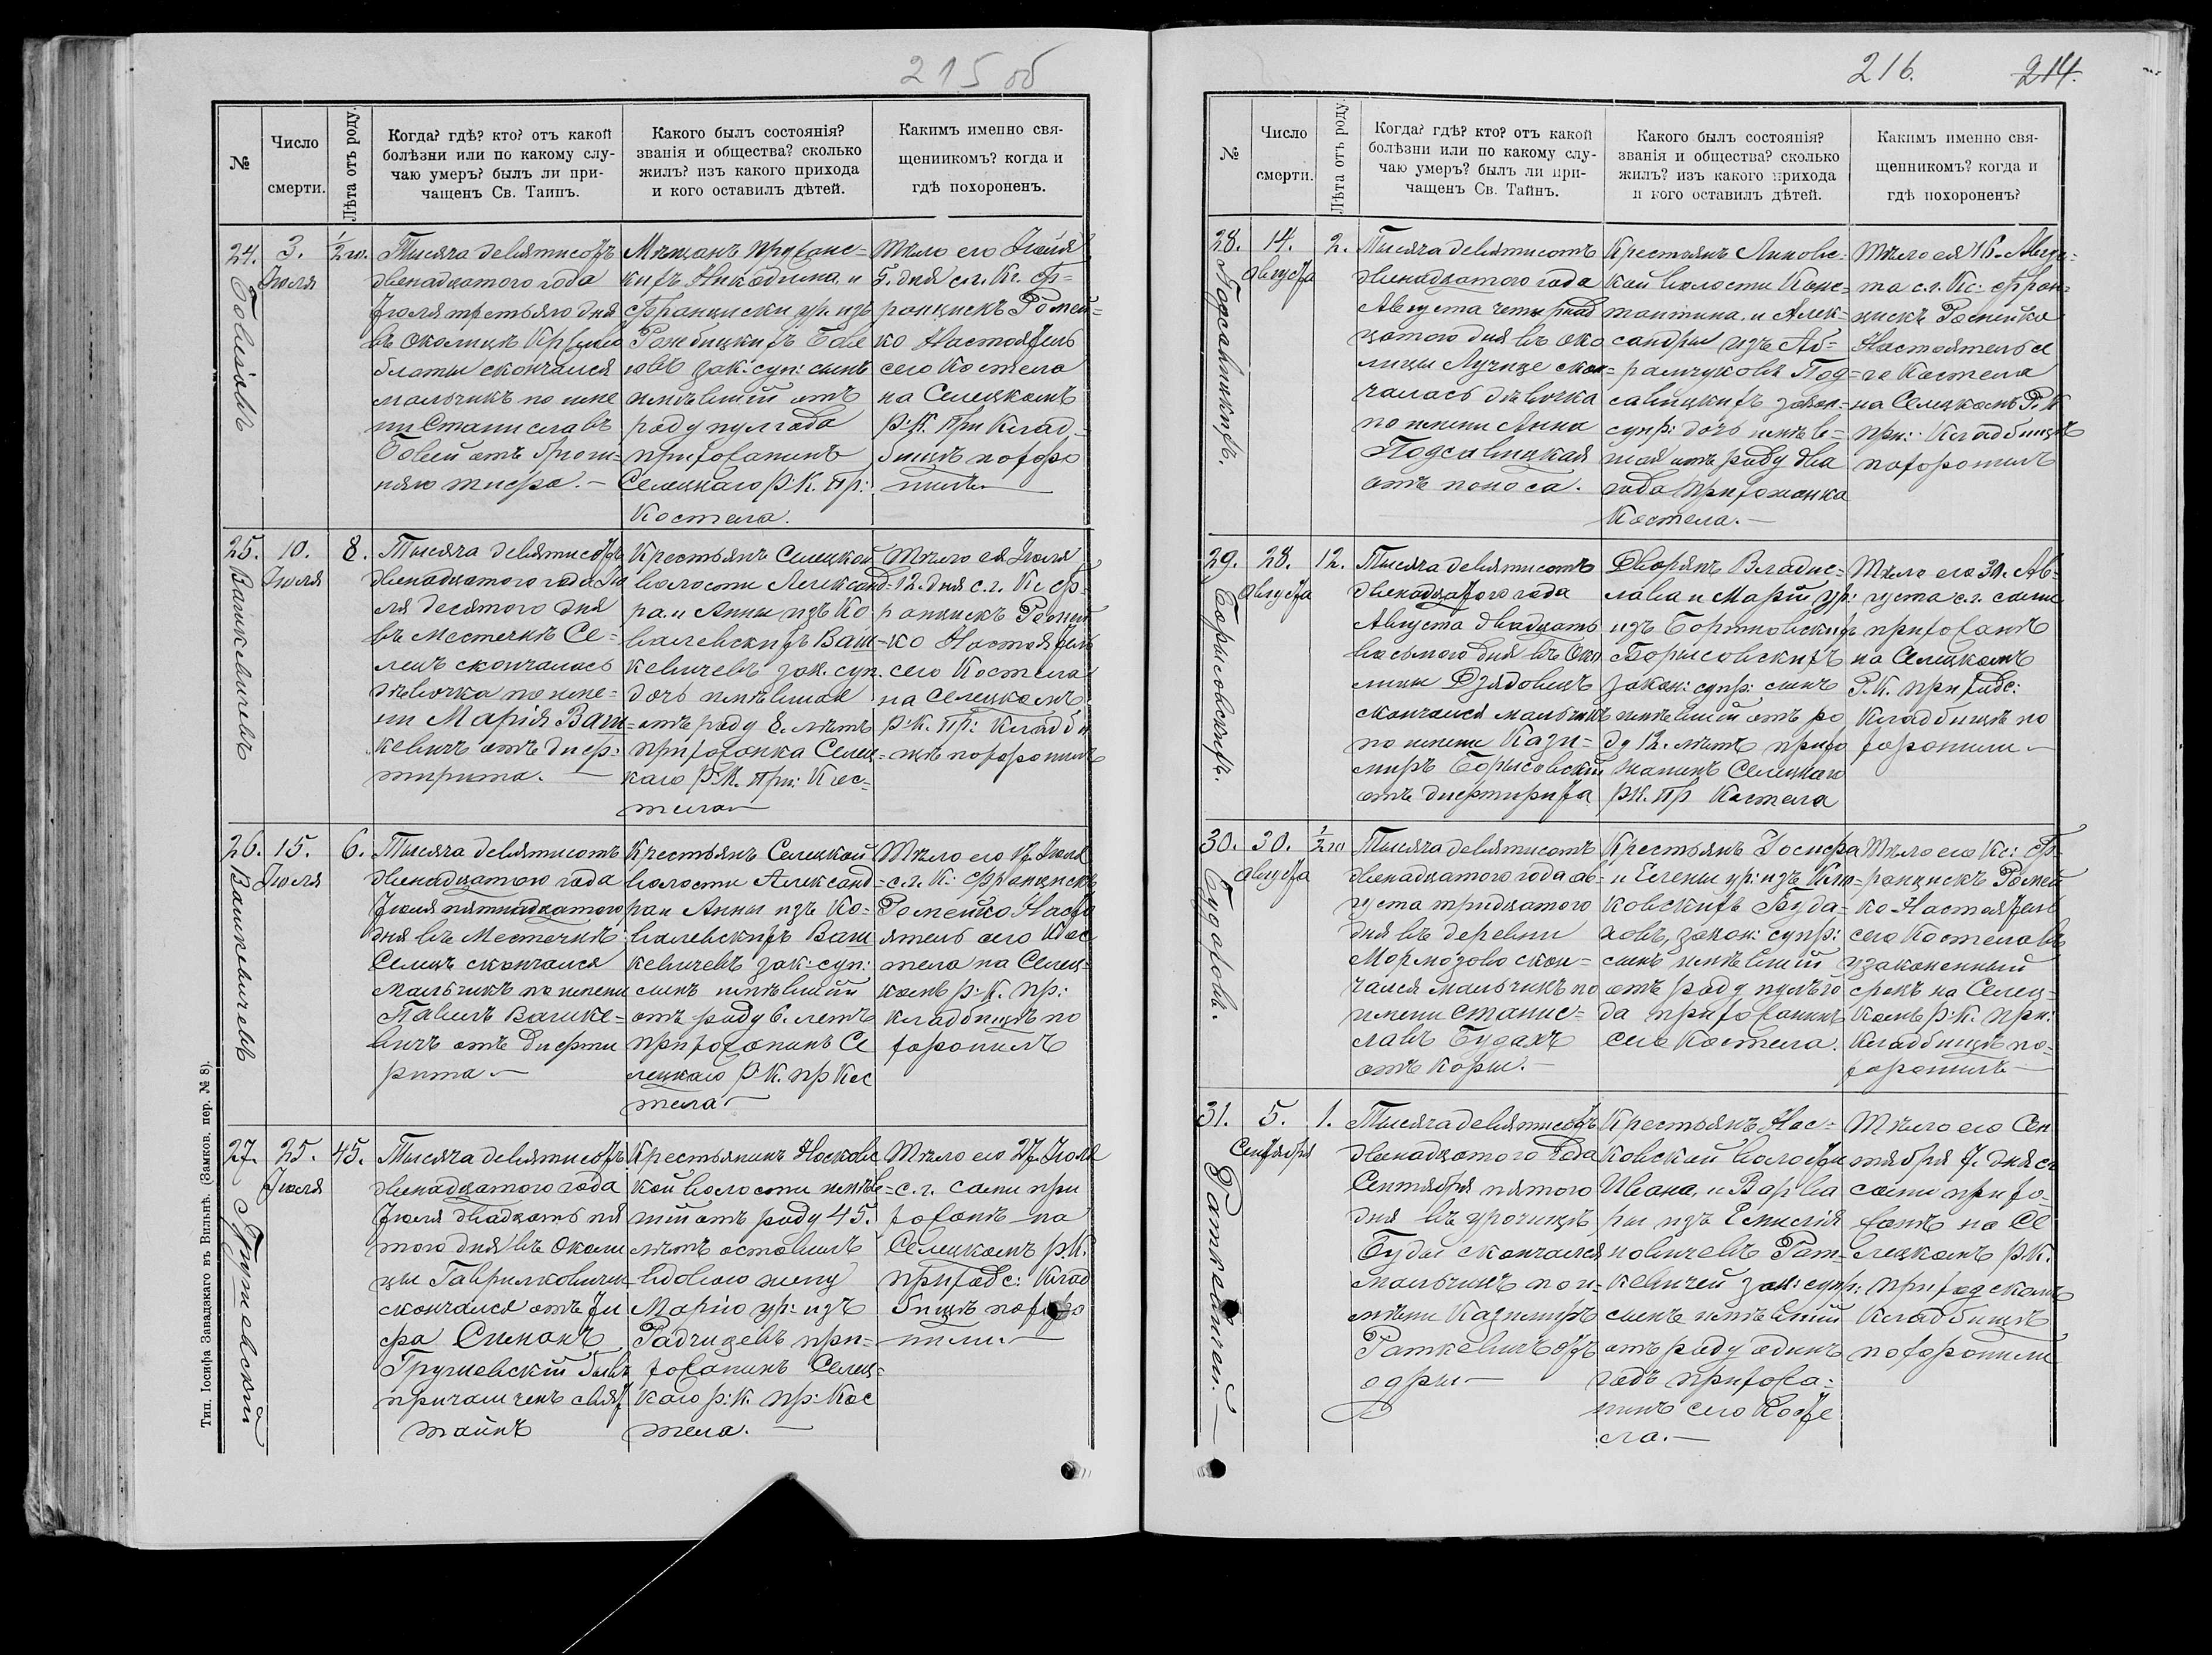 215 об
№
Число
смерти.
Лѣта отъ роду.
Когда? гдѣ? кто? отъ какой
болѣзни или по какому слу-
чаю умеръ? былъ ли при-
чащенъ Св. Таинъ.
Какого былъ состоянія?
званія и общества? сколько
жилъ? изъ какого прихода
и кого оставилъ дѣтей.
Какимъ именно свя-
щенникомъ? когда и
гдѣ похороненъ.
24.
3.
Іюля
Тысяча девятисотъ
двенадцатого года
Іюля третьяго дня
въ околицѣ
скончался
мальчикъ по име
ни Станиславъ
отъ
Мѣщанъ
Никодима и
Франциски ур. изъ
зак: суп: сынъ
имѣвшій отъ
роду пул года
прихожанинъ
Селецкаго Р. К. Пр:
Костела.
Тѣло его Іюля
5. дня с. г. Кс. Ф-
ранцискъ Ромей-
ко Настоятель
сего Костела
на Селецкомъ
Р. К. При Клад-
бищѣ похоро
нилъ
25.
Вашкевичевъ
10.
Іюля
8.
Тысяча девятисотъ
двенадцатого года Ію
ля десятого дня
въ Местечкѣ Се-
лецъ скончалась
дѣвочка по име-
ни Марія Ваш-
кевичъ отъ диф-
тирита.
Крестьянъ Селецкой
волости Александ-
ра и Анны изъ Ко
валевскихъ Ваш-
кевичевъ зак. суп.
дочь имѣвшая
отъ роду 8. лѣтъ
прихожанка Селец-
каго Р. К. При: Кос-
тела
Тѣло ея Іюля
12. дня с. г. Кс Ф-
ранцискъ Ромей
ко Настоятель
сего Костела
на Селецкомъ
Р. К. Пр: Кладби
щѣ похоронилъ
26.
Вашкевичевъ
15.
Іюля
6.
Тысяча девятисотъ
двенадцатого года
Іюля пятнадцатого
дня въ Местечкѣ
Селецъ скончался
мальчикъ по имени
Павелъ Вашке-
вичъ отъ Дифти
рита
Крестьянъ Селецкой
волости Александ-
ра и Анны изъ Ко-
валевскихъ Ваш
кевичевъ зак: суп:
сынъ имѣвшій
отъ роду 6. летъ
прихожанинъ Се
лецкаго Р. К. пр Кос
тела
Тѣло его 17. Іюля
с. г. К: Францискъ
Ромейко Насто
ятель сего Кос
тела на Селец-
комъ р: К. пр:
кладбищѣ по
хоронилъ
27.
Грушевский
25.
Іюля
45.
Тысяча девятисотъ
двенадцатого года
Іюля двадцать пя
того дня въ Околи
цы Гаврилковичи
скончался отъ ти
фа Симонъ
Грушевскій бывъ
причащенъ свят
таинъ
Крестьянинъ Носковс
кой волости имѣв-
шій отъ роду 45.
лѣтъ оставилъ
вдовою жену
Марію ур: изъ
при-
хожанинъ Селец-
каго р: К. пр: Кос
тела.
Тѣло его 27. Іюля
с. г. сами при
хожанѣ на
Селецкомъ р. К.
приходс: Клад
бищѣ похоро
нили.
Тип. Іосифа Завадзкаго въ Вильнѣ. (Замков. пер. № 8).
216. 214.
№
Число
смерти.
Лѣта отъ роду
Когда? гдѣ? кто? отъ какой
болѣзни или по какому слу-
чаю умеръ? былъ ли при-
чащенъ Св. Тайнъ.
Какого былъ состоянія?
званія и общества? сколько
жилъ? изъ какого прихода
и кого оставилъ дѣтей.
Какимъ именно свя-
щенникомъ? когда и
гдѣ похороненъ?
28.
Подсавицкихъ.
14.
Августа
2.
Тысяча девятисотъ
двенадцатого года
Августа четырнад
цатого дня въ око
лицы Лучице скон-
чалась дѣвочка
по имени Анна
Подсавицкая
отъ поноса.
Крестьянъ
кой волости Конс-
тантина и Алек-
сандры изъ Аб-
рамчуковъ Под-
савицкихъ закон-
супр: дочь имѣв-
шая отъ роду два
года прихожанка
Костела.
Тѣло ея 16. Авгус-
та с. г. Кс: Фран-
цискъ Ромейко
Настоятель се
го Костела
на Селецкомъ Р. К
при: Кладбищѣ
похоронилъ
29.
Борысовскихъ.
28.
Августа
12.
Тысяча девятисотъ
двенадцатого года
Августа двадцать
восьмого дня въ Око
лицы Дзядовецъ
скончался мальчикъ
по имени Кази-
миръ Борысовскій
отъ дифтирита
Дворянъ Владис-
лава и Маріи ур:
изъ Бортновскихъ
Борысовскихъ
закон: супр: сынъ
имѣвшій отъ ро
ду 12. лѣтъ прихо
жанинъ Селецкаго
Р. К. Пр Костела
Тѣло его 30. Ав-
густа с. г. сами
прихожанѣ
на Селецкомъ
Р. К. приходс:
Кладбищѣ по
хоронили
30.
Будаховъ.
30.
Августа
Тысяча девятисотъ
двенадцатого года ав-
густа тридцатого
дня въ деревни
Мормозово скон-
чался мальчикъ по
имени Станис-
лавъ Будахъ
отъ кори.
Крестьянъ Іосифа
и Елены ур: изъ
ковскихъ Буда-
ховъ, закон: супр:
сынъ имѣвшій
отъ роду пулъго
да прихожанинъ
сего Костела.
Тѣло его Кс: Ф-
ранцискъ Ромей
ко Настоятель
сего Костела въ
узаконенный
срокъ на Селец-
комъ р: К. при:
Кладбищѣ по-
хоронилъ
31.
Раткевичей.
5.
Сентября
1.
Тысяча девятисотъ
двенадцатого года
Сентября пятого
дня въ урочищѣ
Буды скончался
мальчикъ по и-
мѣни Казимиръ
Раткевичъ отъ
одры
Крестьянъ Нос-
ковской волости
Ивана и Варва
ры изъ
новичевъ Рат-
кевичей зак: супр:
сынъ имѣвшій
отъ роду одинъ
годъ прихожа-
нинъ сего Косте
ла.
Тѣло его Сен
тября 7. дня сг
сами прихо-
жанѣ на Се
лецкомъ р. К.
приходскомъ
Кладбищѣ
похоронили